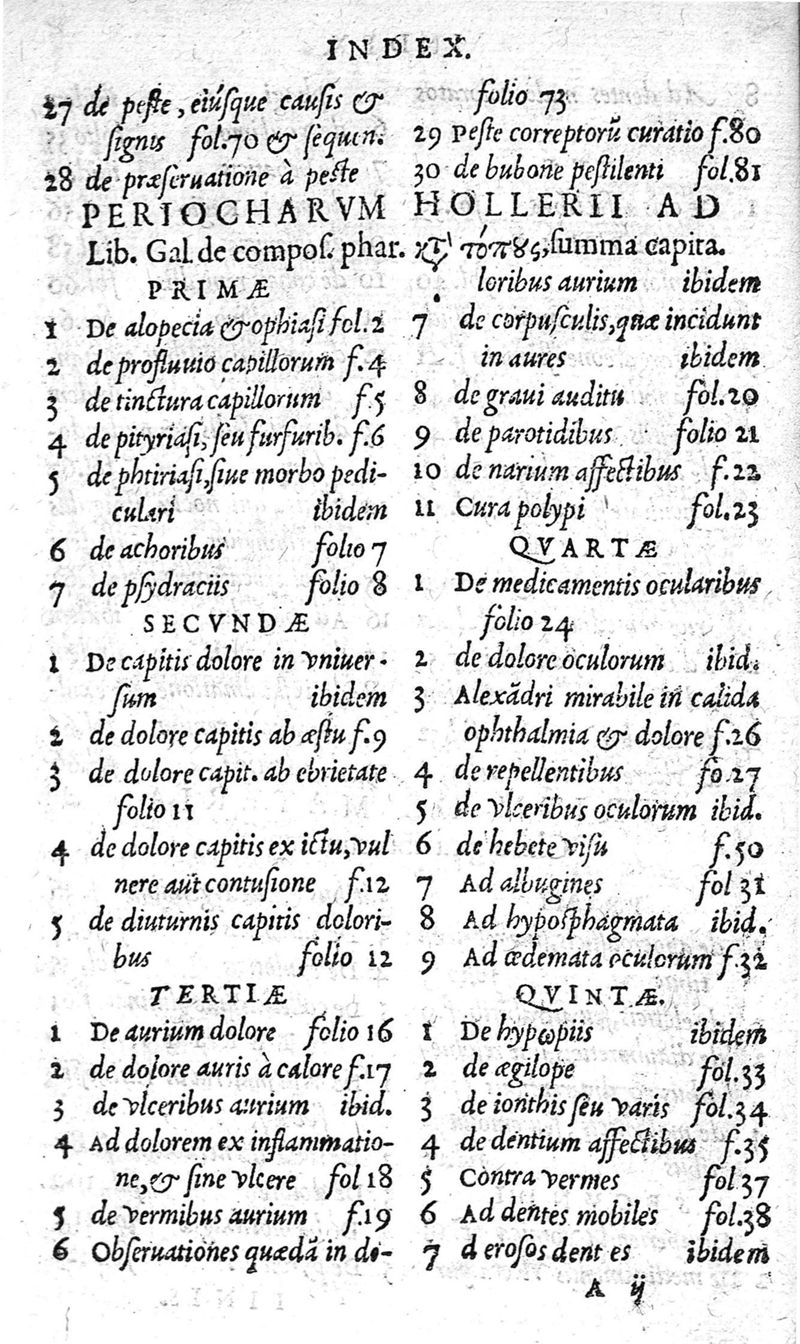 INDEX.
27 de peste, eiúsque causis &
signis fol.70 & sequen.
28 de præseruatione à peste
folio 73
29 Peste correptorũ curatio f.80
30 de bubone pestilenti fol.81
PERIOCHARVM HOLLERII AD
Lib. Gal. de compos. phar. κτ' τόπους, summa capita.
PRIMÆ
1 De alopecia & ophiasi fol.2
2 de profluuio capillorum f.4
3 de tinctura capillorum f.5
4 de pityriasi, seu furfurib. f.6
5 de phtiriasi, siue morbo pedi-
culari ibidem
6 de achoribus folio 7
7 de psydraciis folio 8
SECVNDÆ
1 De capitis dolore in vniuer-
sum ibidem
2 de dolore capitis ab æstu f.9
3 de dolore capit. ab ebrietate
folio 11
4 de dolore capitis ex ictu, vul
nere aut contusione f.12
5 de diuturnis capitis dolori-
bus folio 12
TERTIÆ
1 De aurium dolore folio 16
2 de dolore auris à calore f.17
3 de vlceribus aurium ibid.
4 Ad dolorem ex inflammatio-
ne, & sine vlcere fol 18
5 de vermibus aurium f.19
6 Obseruationes quædã in do-
loribus aurium ibidem
7 de corpusculis, quæ incidunt
in aures ibidem
8 de graui auditu fol.20
9 de parotidibus folio 21
10 de narium affectibus f.22
11 Cura polypi fol.23
QVARTÆ
1 De medicamentis ocularibus
folio 24
2 de dolore oculorum ibid.
3 Alexãdri mirabile in calida
ophthalmia & dolore f.26
4 de repellentibus fo.27
5 de vlceribus oculorum ibid.
6 de hebete visu f.50
7 Ad albugines fol 31
8 Ad hyposphagmata ibid.
9 Ad œdemata oculorum f.32
QVINTÆ.
1 De hypωpiis ibidem
2 de ægilope fol.33
3 de ionthis seu varis fol.34
4 de dentium affectibus f.35
5 Contra vermes fol.37
6 Ad dentes mobiles fol.38
7 d erosos dent es ibidem
A ij